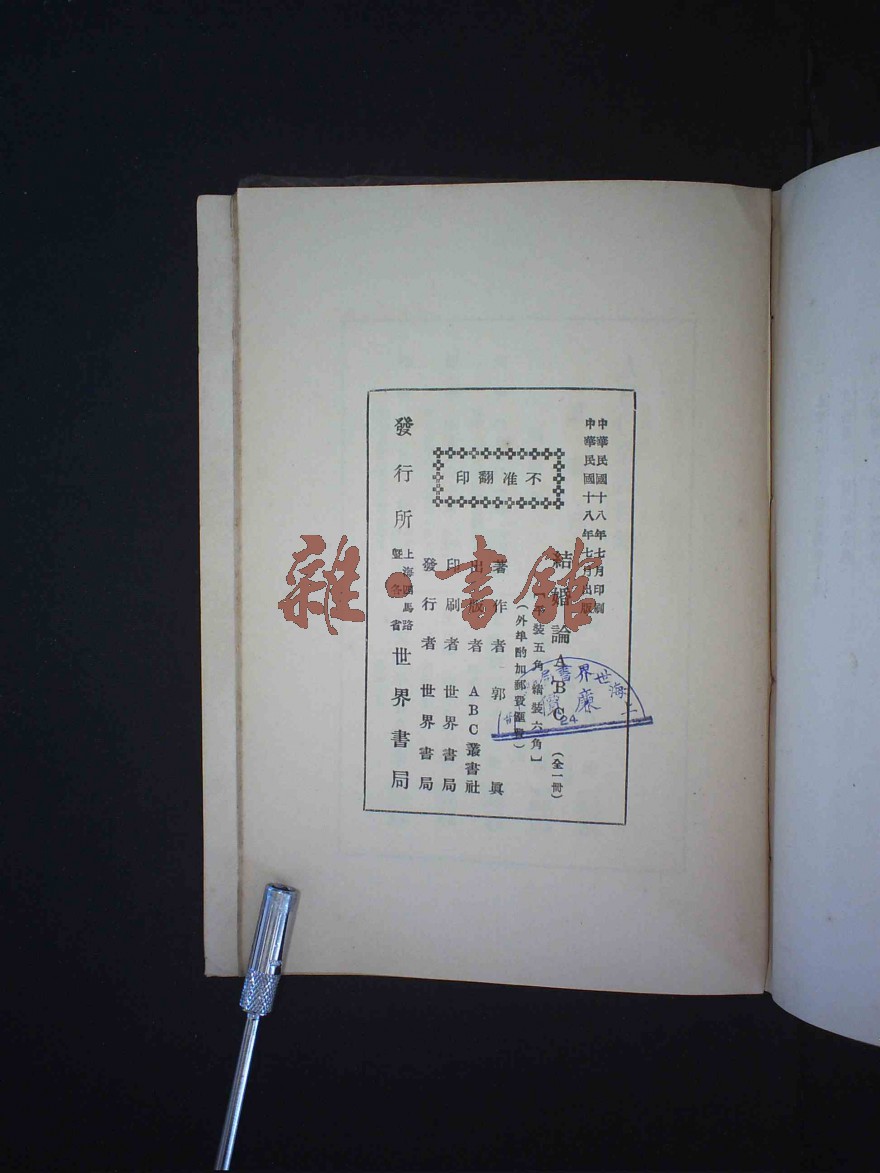 中華民國十八年七月印刷
中華民國十八年七月出版
結婚論ABC（全一冊）
【平裝五角 精裝六角】
（外埠酌加郵費匯費）
不准翻印
著作者 郭眞
出版者 ABC叢書社
印刷者 世界書局
發行者 世界書局
發行所 上海四馬路 暨各省 世界書局
上海世界書局
廉價
24
雜·書館